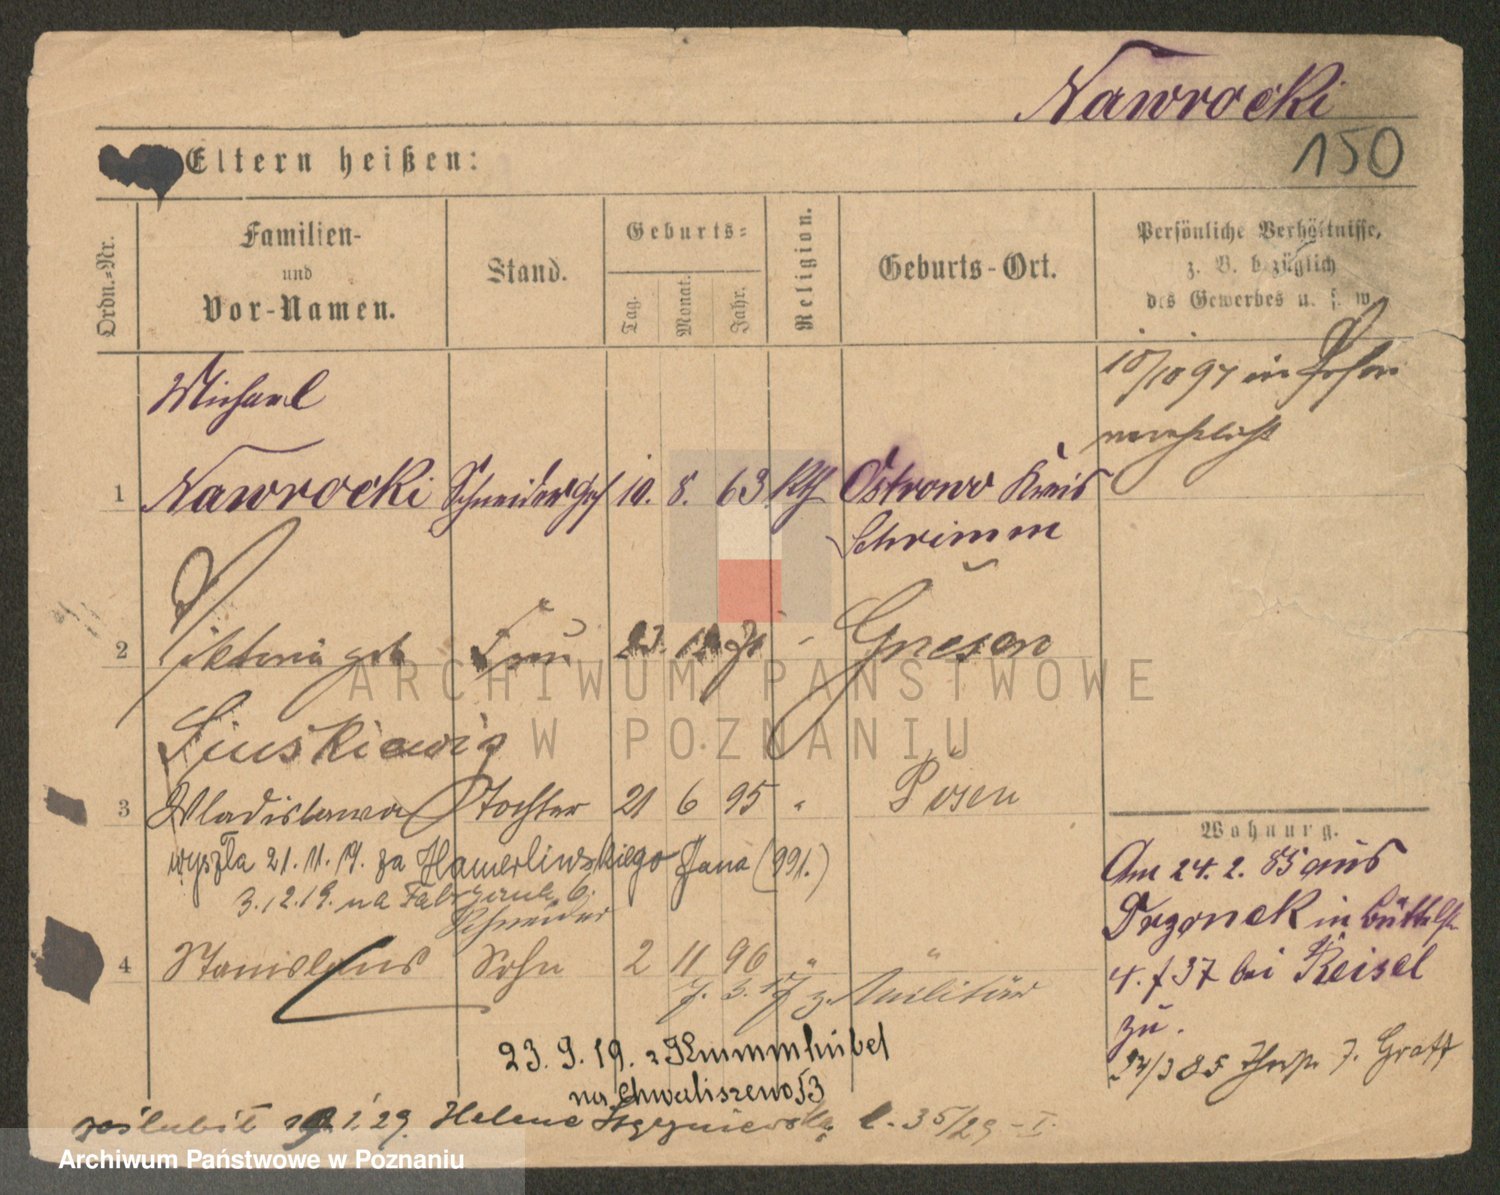 Nawrocki
150
Eltern heißen:
Ordn.-Nr.
Familien-
und
Vor-Namen.
Stand.
Geburts-
Tag.
Monat.
Jahr.
Religion.
Geburts-Ort.
Persönliche Verhältnisse,
z. B. bezüglich
des Gewerbes u. s. w.
Michael
10/10 97 in Posen
verehelicht
1 Nawrocki Schneiderges 10. 8. 63 Kth Ostrowo Kreis
Schrimm
2 Viktoria geb Frau 23. 12 71 - Gnesen
3 Wladislawa Tochter 21 6 95 " Posen
wyszła 21. 11. 19. za Hamerlińskiego Jana (991.)
3.12.19. na
Schneider
4 Stanislaus Sohn 2 11 96 " "
7. 3. 17 z. Militär
23. 9. 19. z Krummhübel
na Chwaliszewo 53
zaślubił 1. 29. Helene l. 35/29 - I.
Wohnung.
Am 24. 2. 85 aus
Drzonek in Büttelstr
4. f 37 bei Reisel
zu.
24/3 85 J. Graff
ARCHIWUM PAŃSTWOWE
W POZNANIU
Archiwum Państwowe w Poznaniu